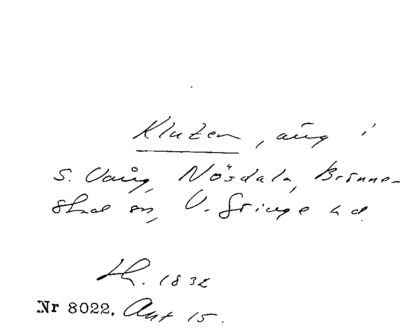 Klutzen, äng i
s. Vång, Nösdala, Brönne-
stad sn, V. Göinge hd.
Th. 1832
Nr 8022. Akt 15.